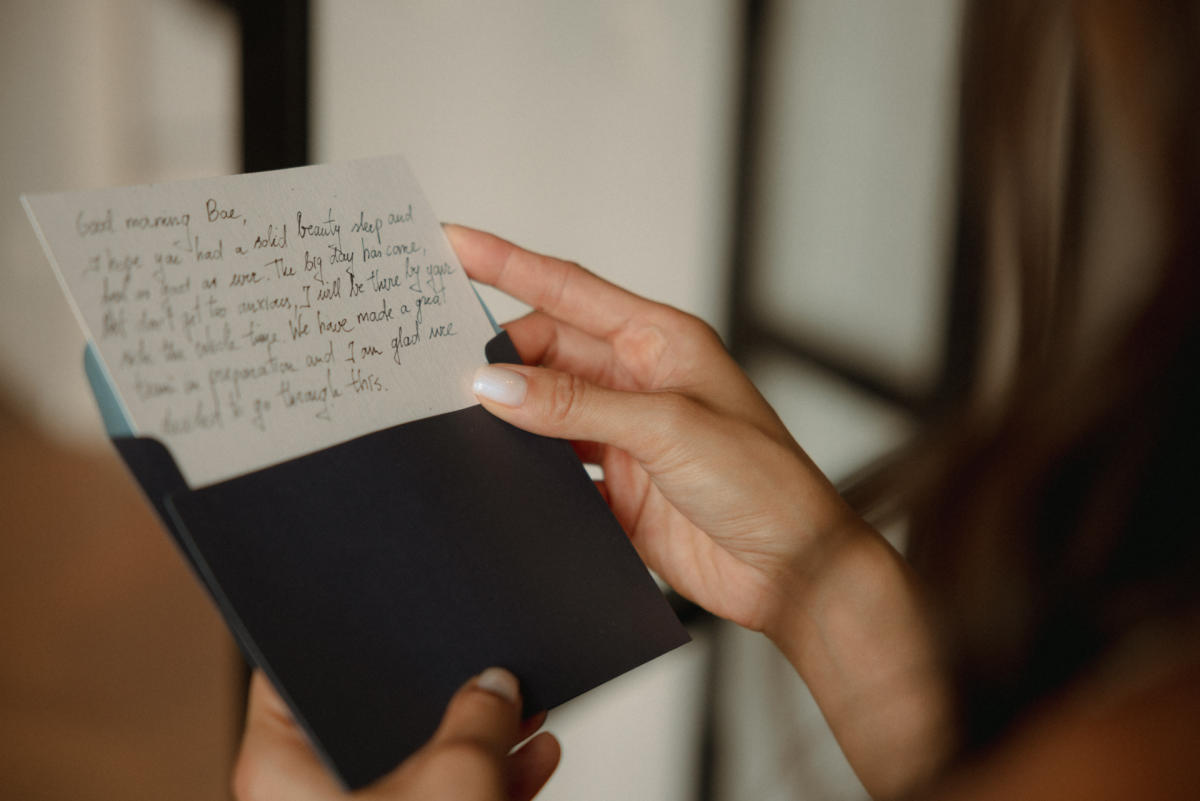 Good morning Bae,
I hope you had a solid beauty sleep and
as ever. The Big Day has come,
But don't get too anxious, I will be there by your
side the whole time. We have made a great
team in preparation and I am glad we
decided to go through this.